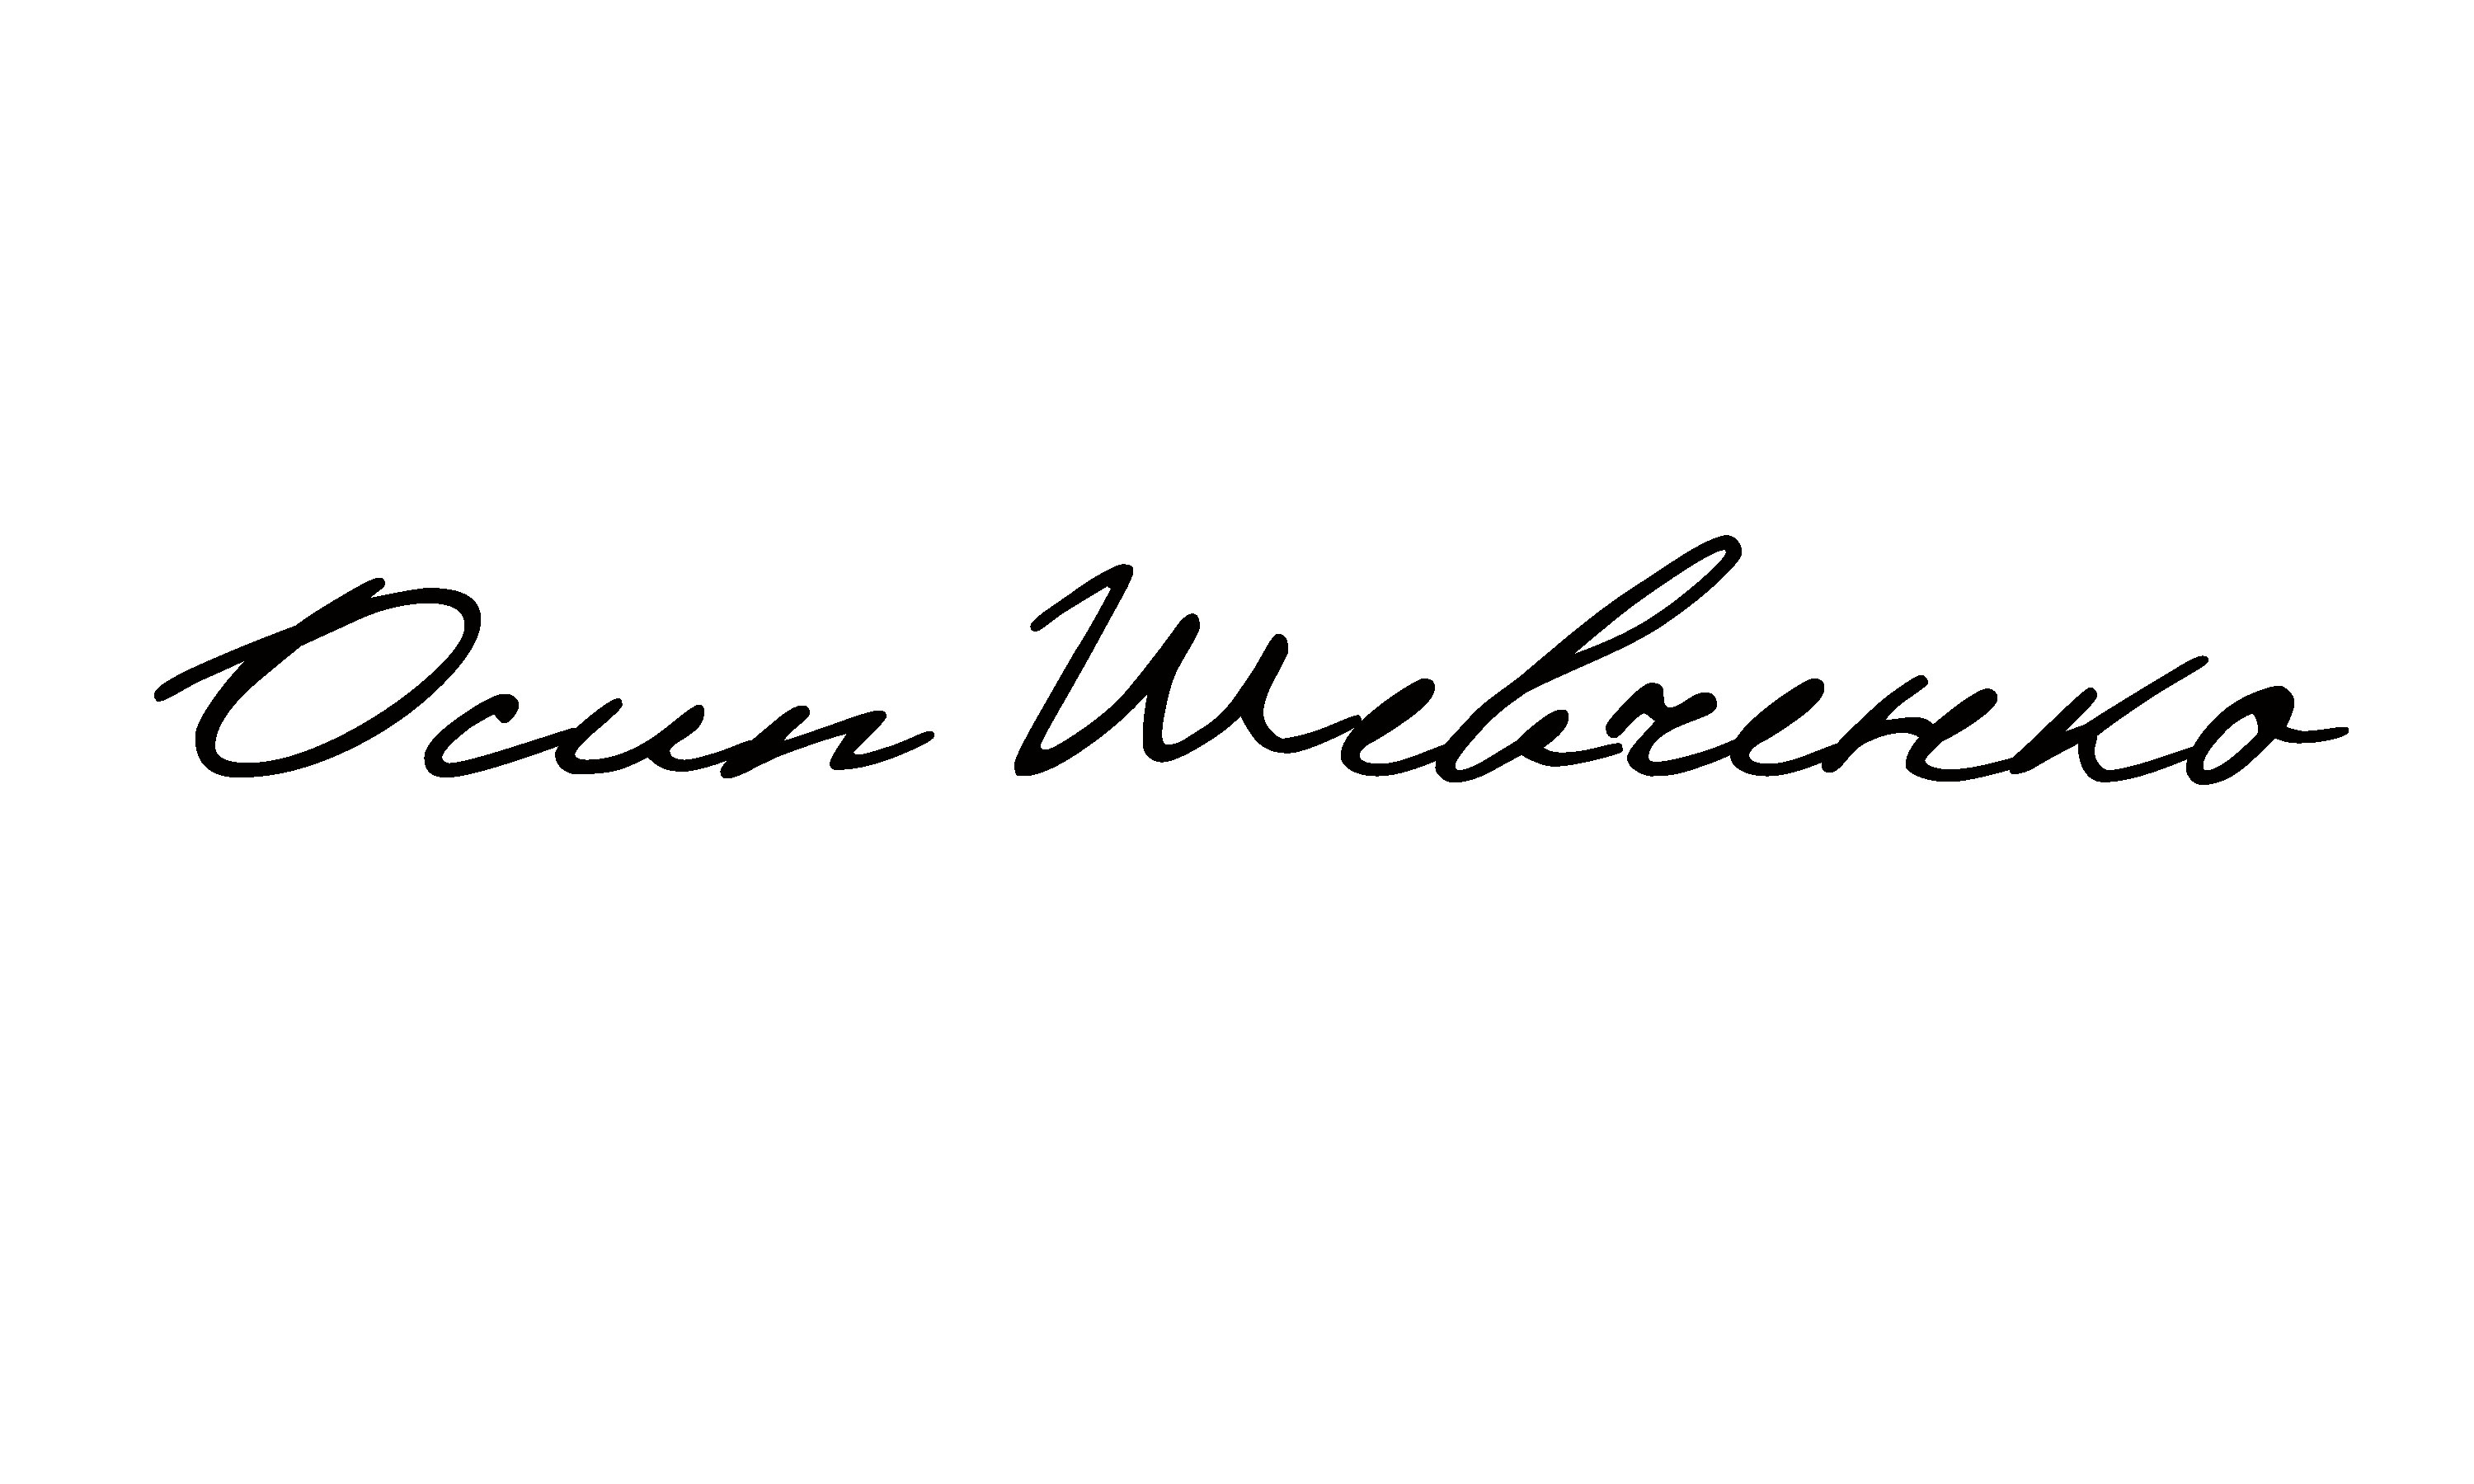 Осип Шевченко